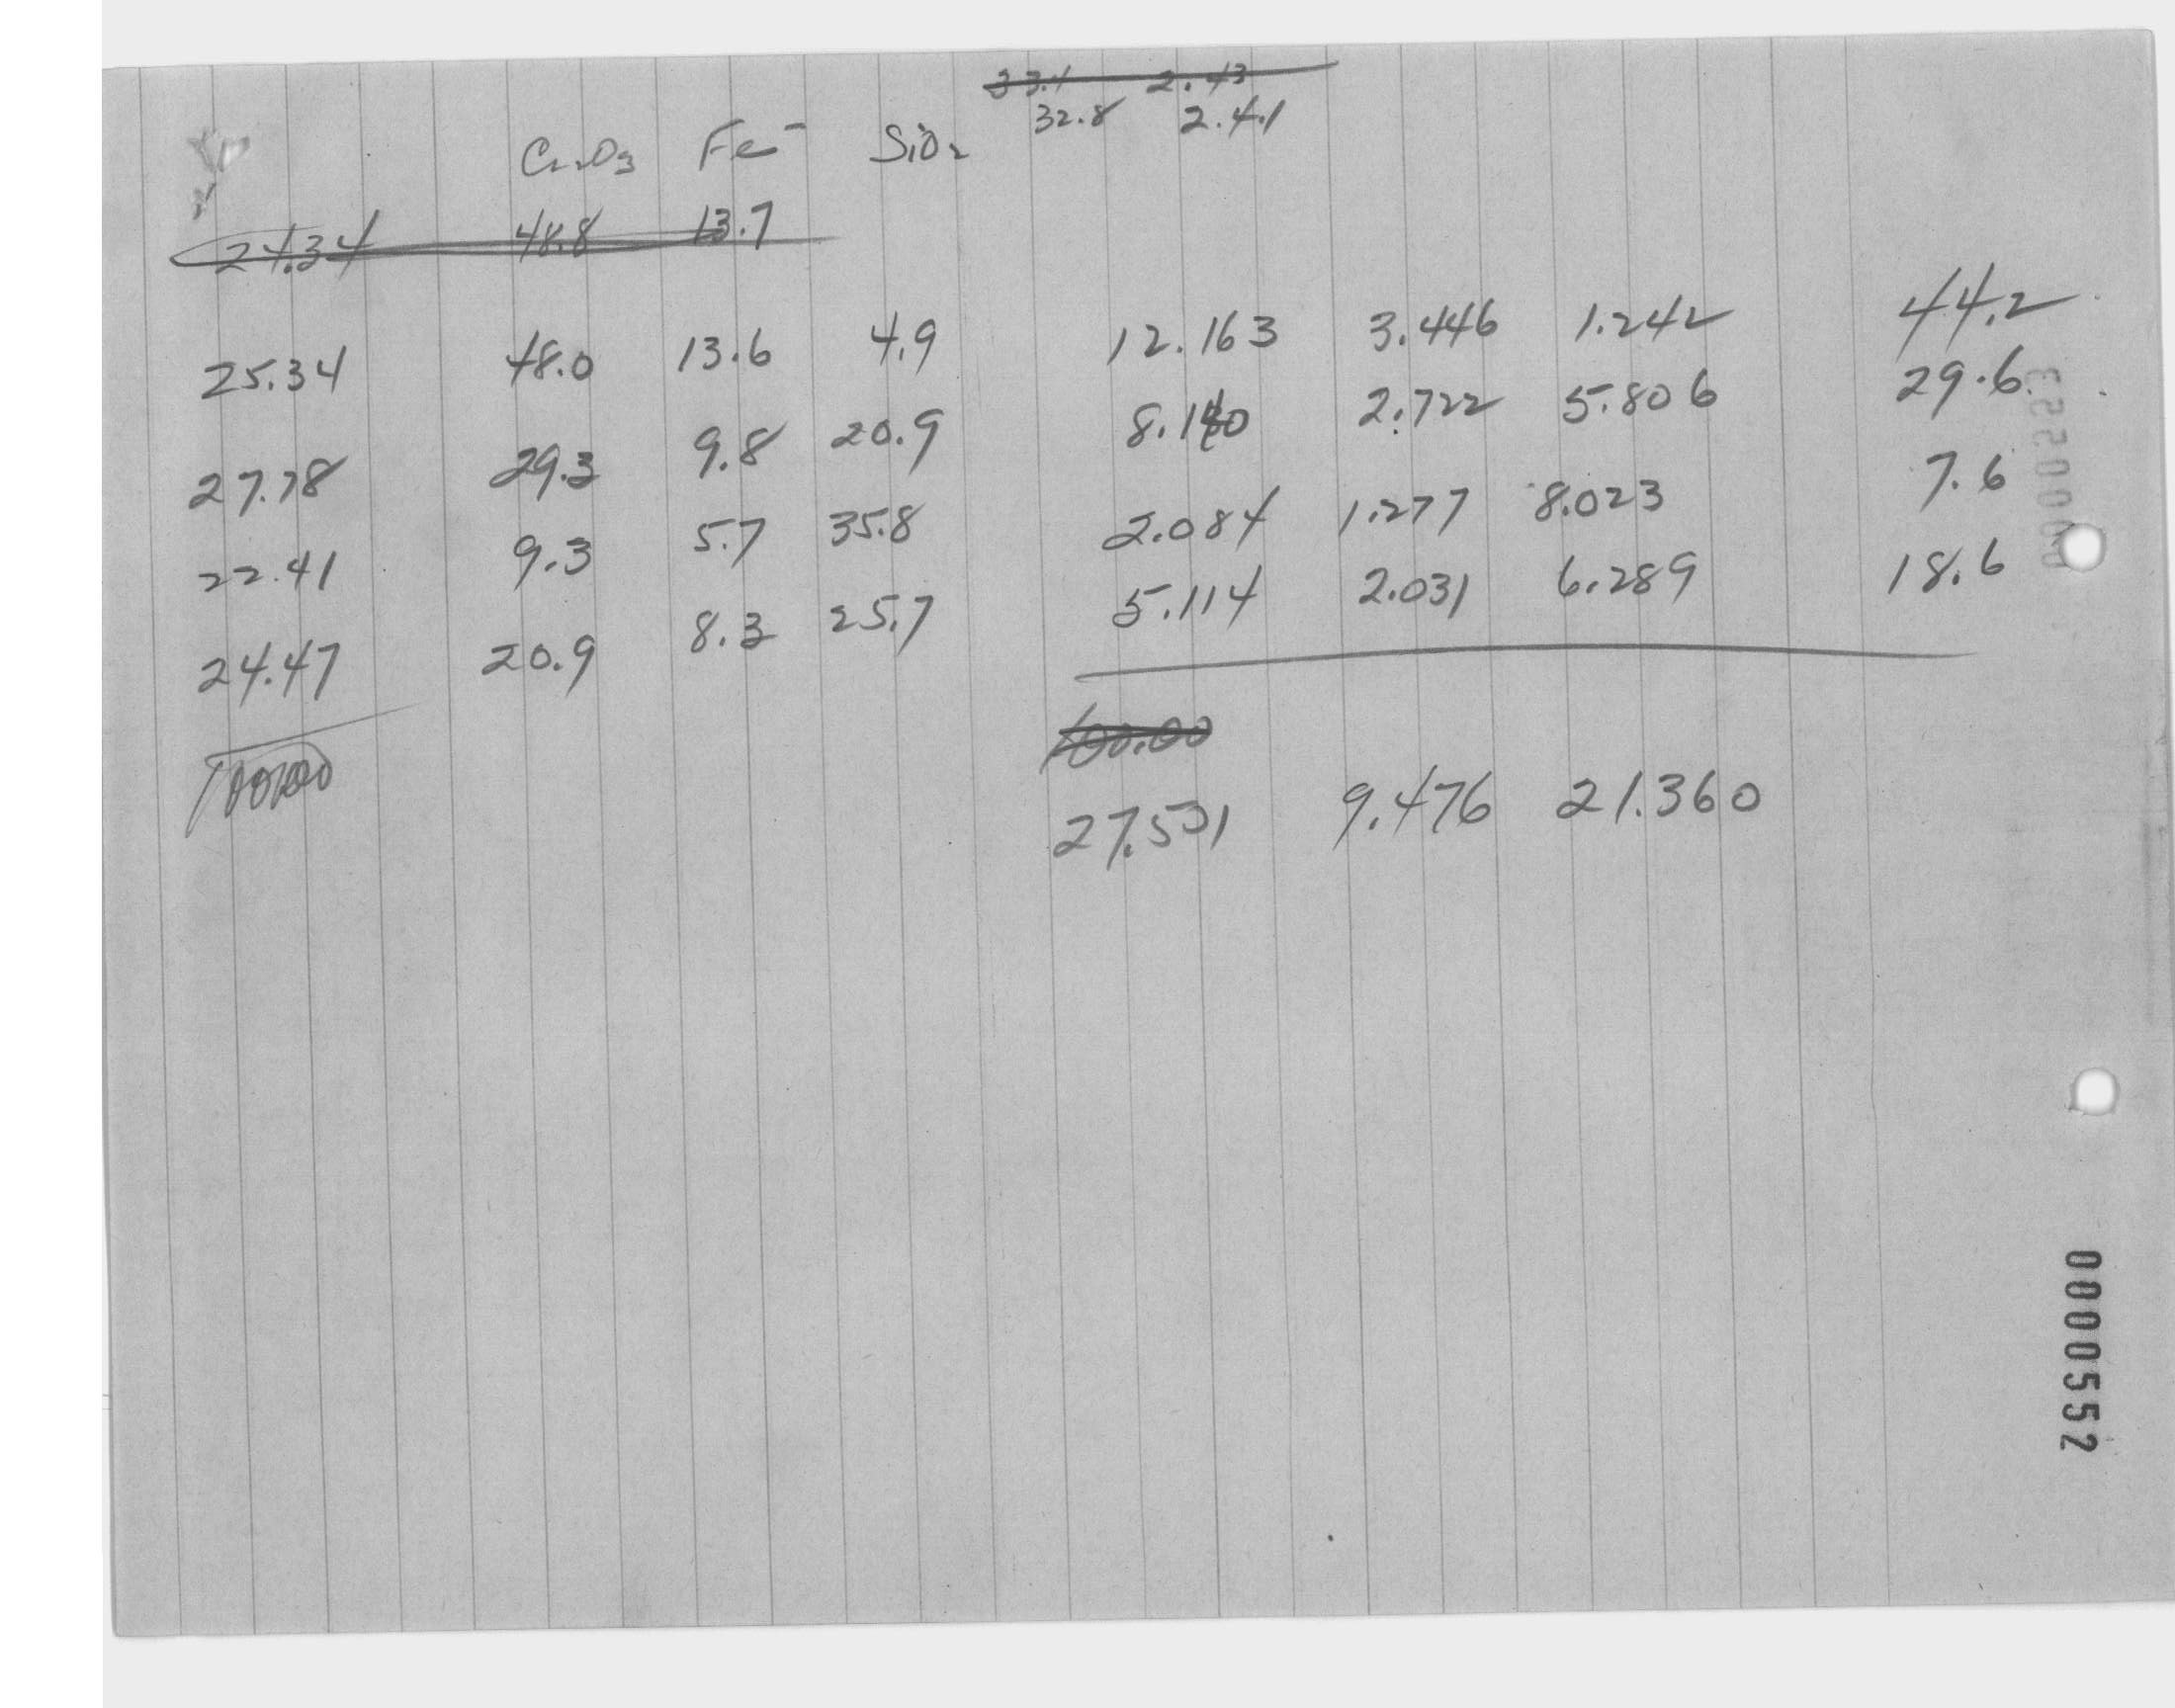 33.1 2.43
32.8 2.4.1
Cr2O3 Fe SiO2
24.34 48.8 13.7
25.34 48.0 13.6 4.9 12.163 3.446 1.242 44.2
27.78 29.3 9.8 20.9 8.140 2.722 5.806 29.6
22.41 9.3 5.7 35.8 2.084 1.277 8.023 7.6
24.47 20.9 8.3 25.7 5.114 2.031 6.289 18.6
100.00 100.00
27.501 9.476 21.360
0000553
0000552